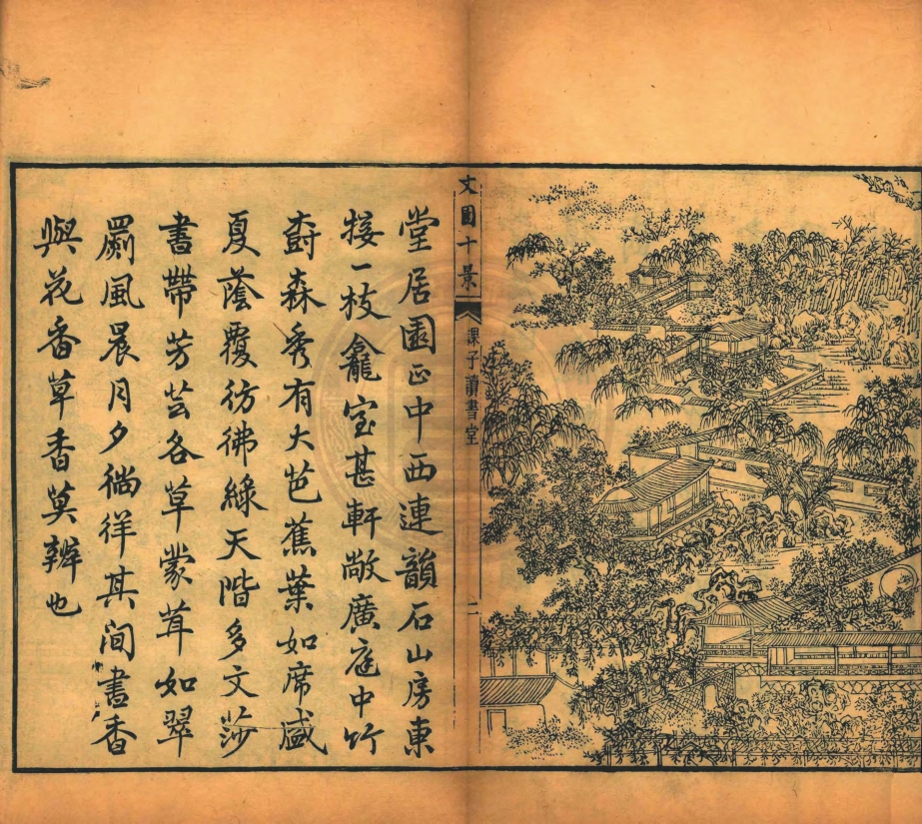 文園十景
課子讀書堂
二
堂居園正中西連韻石山房東
接一枝龕室甚軒敞廣庭中竹
樹森秀有大芭蕉葉如席盛
夏蔭覆彷彿綠天階多文莎
書帶芳芸各草蒙茸如翠
罽風晨月夕徜徉其間書香
與花香草香莫辨也